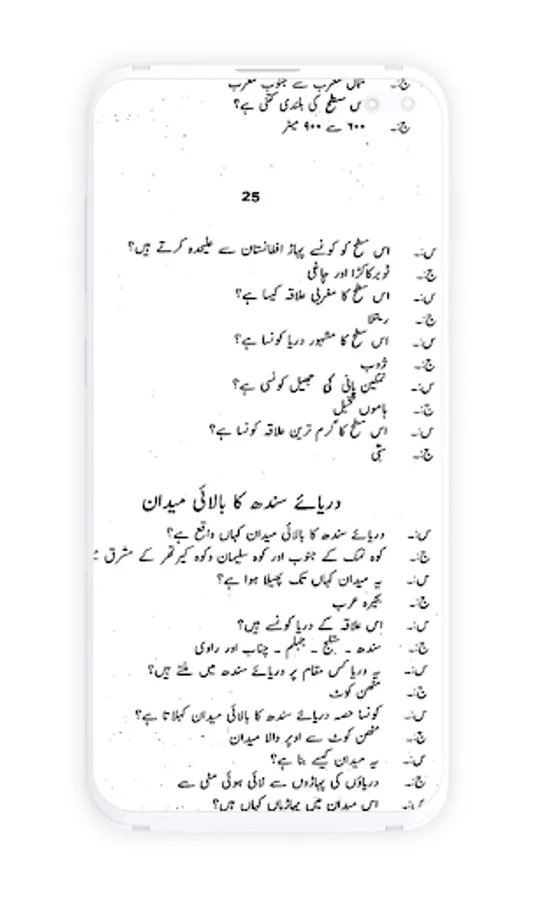 ج:۔ شمال مغرب سے جنوب مغرب
س سطح کی بلندی کتنی ہے؟
ج:۔ ۶۰۰ سے ۹۰۰ میٹر
25
س:۔ اس سطح کو کونسے پہاڑ افغانستان سے علیحدہ کرتے ہیں؟
ج:۔ ٹوبہ کاکڑ اور چاغی
س:۔ اس سطح کا مغربی علاقہ کیسا ہے؟
ج:۔ ریتلا
س:۔ اس سطح کا مشہور دریا کونسا ہے؟
ج:۔ ژوب
س:۔ نمکین پانی کی جھیل کونسی ہے؟
ج:۔ ہاموں
س:۔ اس سطح کا گرم ترین علاقہ کونسا ہے؟
ج:۔ سبی
دریائے سندھ کا بالائی میدان
س:۔ دریائے سندھ کا بالائی میدان کہاں واقع ہے؟
ج:۔ کوہ نمک کے جنوب اور کوہ سلیمان وکوہ کیرتھر کے مشرق
س:۔ یہ میدان کہاں تک پھیلا ہوا ہے؟
ج:۔ بحیرہ عرب
س:۔ اس علاقہ کے دریا کونسے ہیں؟
ج:۔ سندھ ۔ ستلج ۔ جہلم ۔ چناب اور راوی
س:۔ یہ دریا کس مقام پر دریائے سندھ میں ملتے ہیں؟
ج:۔ مٹھن کوٹ
س:۔ کونسا حصہ دریائے سندھ کا بالائی میدان کہلاتا ہے؟
ج:۔ مٹھن کوٹ سے اوپر والا میدان
س:۔ یہ میدان کیسے بنا ہے؟
ج:۔ دریاؤں کی پہاڑوں سے لائی ہوئی مٹی سے
س:۔ اس میدان میں پہاڑیاں کہاں ہیں؟